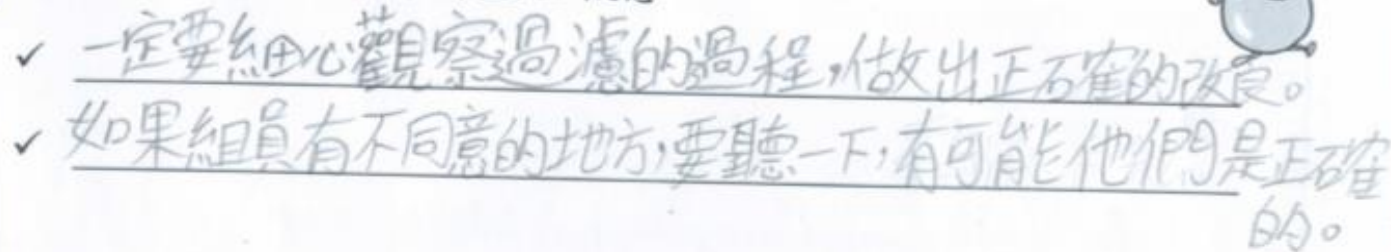 ✓ 一定要細心觀察過濾的過程,做出正確的改良。
✓ 如果組員有不同意的地方,要聽一下,有可能他們是正確
的。